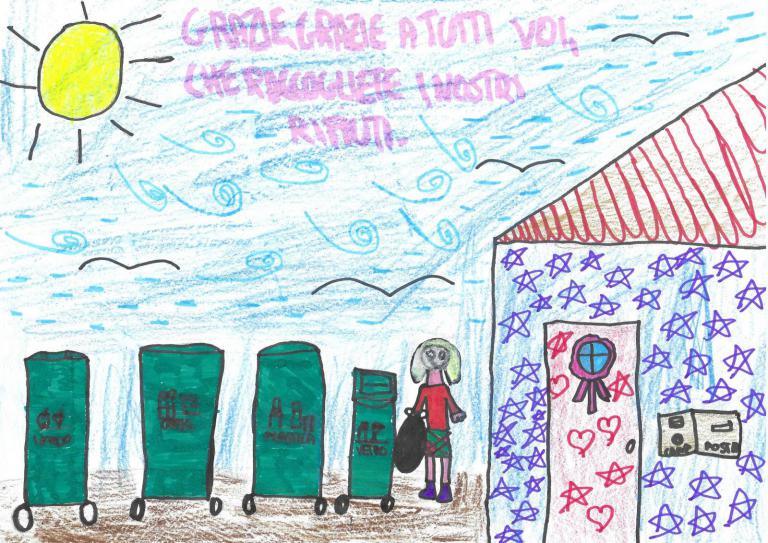 GRAZIE, GRAZIE A TUTTI VOI,
CHE RACCOGLIETE I NOSTRI
RIFIUTI.
PLASTICA
VETRO
POSTA